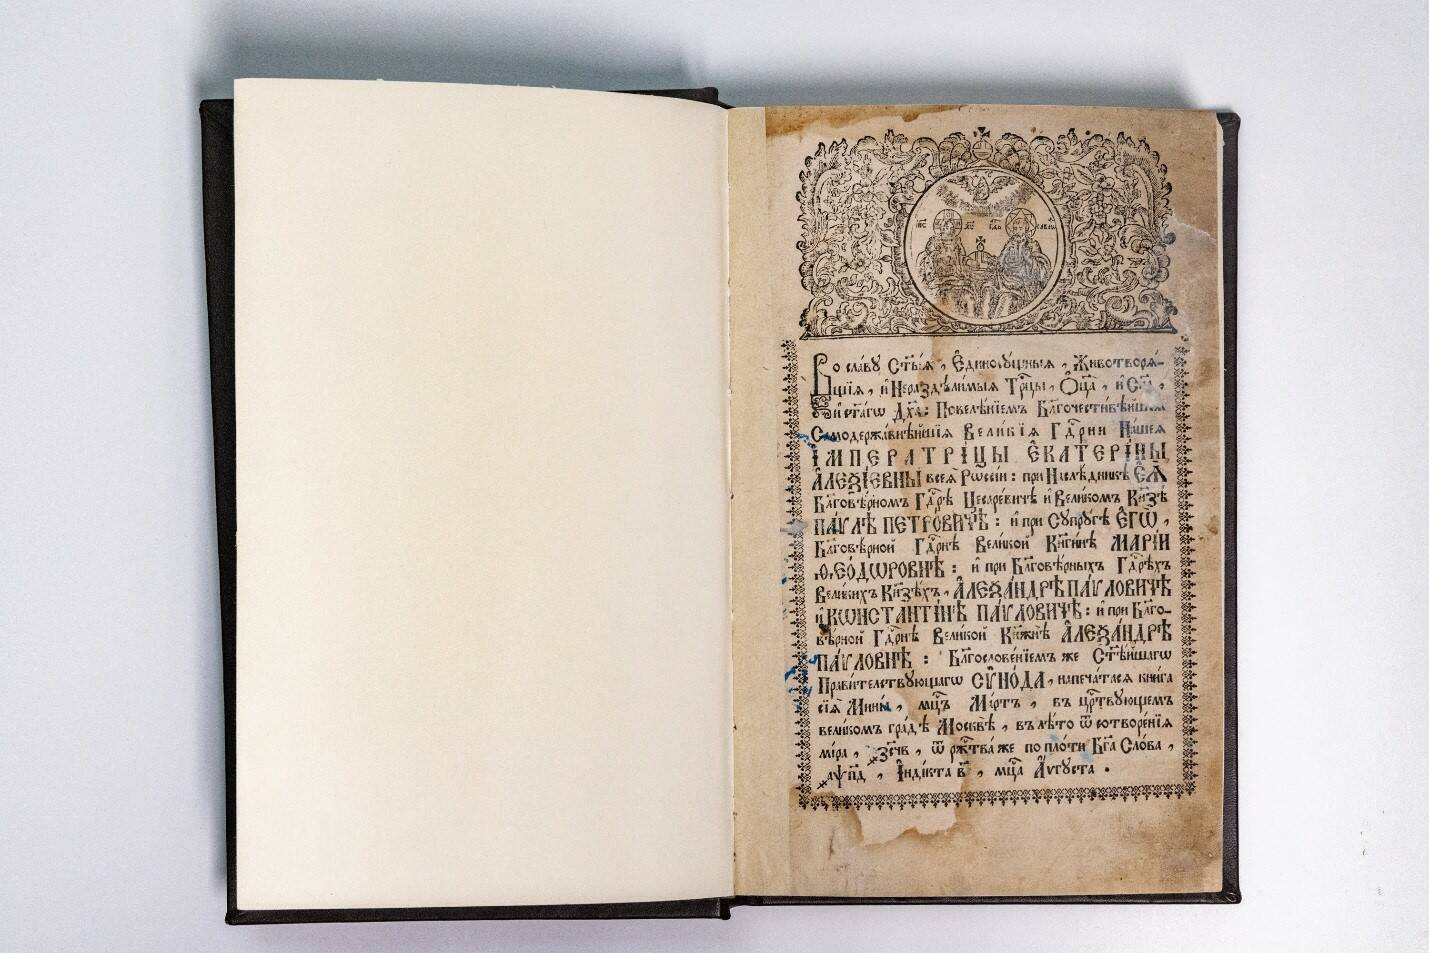 І҃ИС Х҃С
Во сла́ву Ст҃ы́ѧ , Є҆диносꙋ́щныѧ , Животворѧ́-
щїѧ , и҆ Нераздѣ́лимыѧ Трⷪ҇цы , Ѻ҆ц҃а̀ , и҆ Сн҃а ,
и҆ ст҃а́гѡ Дх҃а : Повелѣ́нїемъ Благочести́вѣйшїѧ
Самодержа́внѣйшїѧ Вели́кїѧ Гдⷭ҇рни На́шеѧ
І҆МПЕРАТРІ́ЦЫ Є҆КАТЕРІ́НЫ
А҆ЛЕѮІ́ЕВНЫ всеѧ̀ Рѡссі́и : при Наслѣ́дникѣ Є҆Ѧ̀
Бл҃говѣ́рномъ Гдⷭ҇рѣ Цесаре́вичѣ и҆ Вели́комъ Кнѧ́зѣ
ПА́ѴЛѢ ПЕТРО́ВИЧѢ : и҆ при Сꙋпрꙋ́гѣ Є҆ГѠ̀ ,
Бл҃говѣ́рной Гдⷭ҇рнѣ Вели́кой Кнѧги́нѣ МАРІ́И
Ѳ҆ЕОДѠРОВНѢ : и҆ при Бл҃говѣ́рныхъ Гдⷭ҇рѣхъ
Вели́кихъ Кнѧзѣ́хъ , А҆ЛЕѮА́НДРѢ ПА́ѴЛОВИЧѢ
и҆ КѠНСТАНТІ́НѢ ПА́ѴЛОВИЧѢ : и҆ при Бл҃го-
вѣ́рной Гдⷭ҇рнѣ Вели́кой Кнѧжнѣ̀ А҆ЛЕѮА́НДРѢ
ПА́ѴЛОВНѢ : Бл҃гослове́нїемъ же Ст҃ѣ́йшагѡ
Прави́телствꙋющагѡ СѴНО́ДА , напеча́тасѧ кни́га
сїѧ̀ Мине́ѧ , мцⷭ҇ъ Ма́ртъ , въ црⷭ҇твꙋющемъ
вели́комъ гра́дѣ Москвѣ̀ , въ лѣ́то ѿ сотворе́нїѧ
мі́ра , ҂зсч҃в , ѿ рж҇тва́ же по пло́ти Бг҃а Сло́ва ,
҂аѱп҃д , І҆ндікта в҃ , мцⷭ҇а А҆́ѵгꙋста .